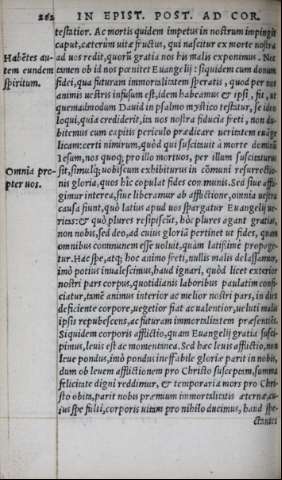 262 IN EPIST. POST. AD COR.
testatior. Ac mortis quidem impetus in nostrum impingit
caput, cæterùm uitæ fructus, qui nascitur ex morte nostra
Habẽtes au- ad uos redit, quorũ gratia nos his malis exponimus. Nec
tem eundem tamen ob id nos pœnitet Euangelij: siquidem cum donum
spiritum. fidei, qua futuram immortalitatem speratis, quod per uos
animis uestris infusum est, idem habeamus & ipsi, fit, ut
quemadmodum Dauid in psalmo mystico testatur, se ideo
loqui, quia crediderit, ita uos nostra fiducia freti, non du
bitemus cum capitis periculo prædicare ueritatem euãge
licam: certi nimirum, quòd qui suscitauit à morte dominũ
Iesum, nos quoq; pro illo mortuos, per illum suscitaturus
Omnia pro- sit, simulq; uobiscum exhibiturus in cõmuni resurrectio-
pter uos. nis gloria, quos hîc copulat fides communis. Sed siue affli
gimur interea, siue liberamur ab afflictione, omnia uestra
causa fiunt, quò latius apud uos spargatur Euangelij ue-
ritas: & quò plures resipiscũt, hòc plures agant gratias,
non nobis, sed deo, ad cuius gloriã pertinet ut fides, quam
omnibus communem esse uoluit, quàm latissimè propage-
tur. Hac spe, atq; hoc animo freti, nullis malis delassamur,
imò potius inualescimus, haud ignari, quòd licet exterior
nostri pars corpus, quotidianis laboribus paulatim confi-
ciatur, tamẽ animus interior ac melior nostri pars, in dies
deficiente corpore, uegetior fiat ac ualentior, ueluti malis
ipsis repubescens, ac futuram immortalitatem præsentiẽs.
Siquidem corporis afflictio, quam Euangelij gratia susci-
pimus, leuis est ac momentanea. Sed hæc leuis afflictio, non
leue pondus, imò pondus ineffabile gloriæ parit in nobis,
dum ob leuem afflictionem pro Christo susceptam, summa
felicitate digni reddimur, & temporaria mors pro Chri-
sto obita, parit nobis præmium immortalitatis æternæ, cu-
ius spe fulti, corporis uitam pro nihilo ducimus, haud spe-
ctantes